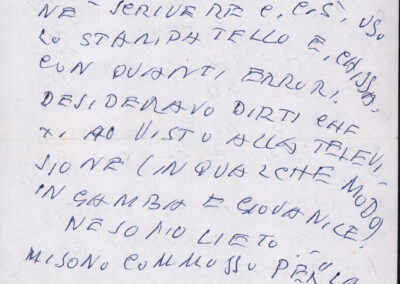 NE SCRIVERE E, CIÒ, USO
LO STAMPATELLO E, CHISSÀ
CON QUANTI ERRORI.
DESIDERAVO DIRTI CHE
TI HO VISTO ALLA TELEVI
SIONE (IN QUALCHE MODO)
IN GAMBA E GIOVANILE!
NE SONO LIETO...
MI SONO COMMOSSO PER LA